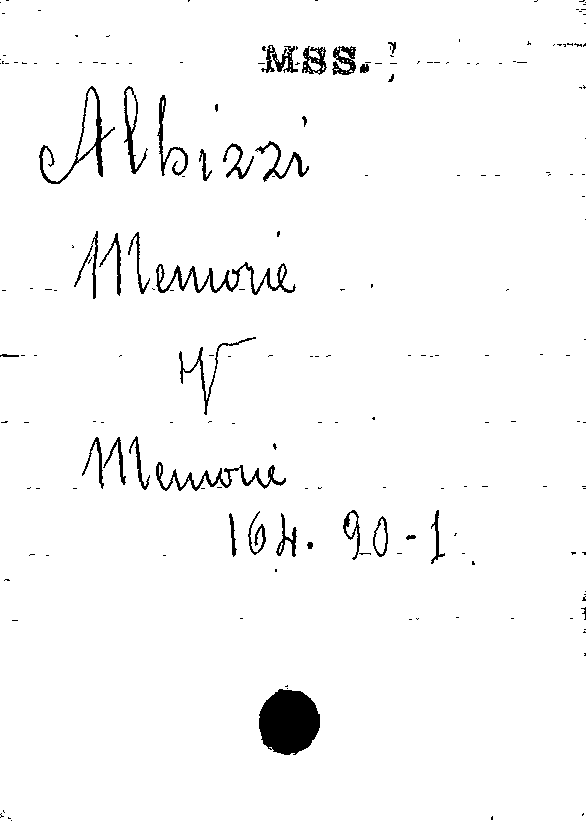 MSS.
Albizzi
Memorie
V
Memorie
164. 90-1